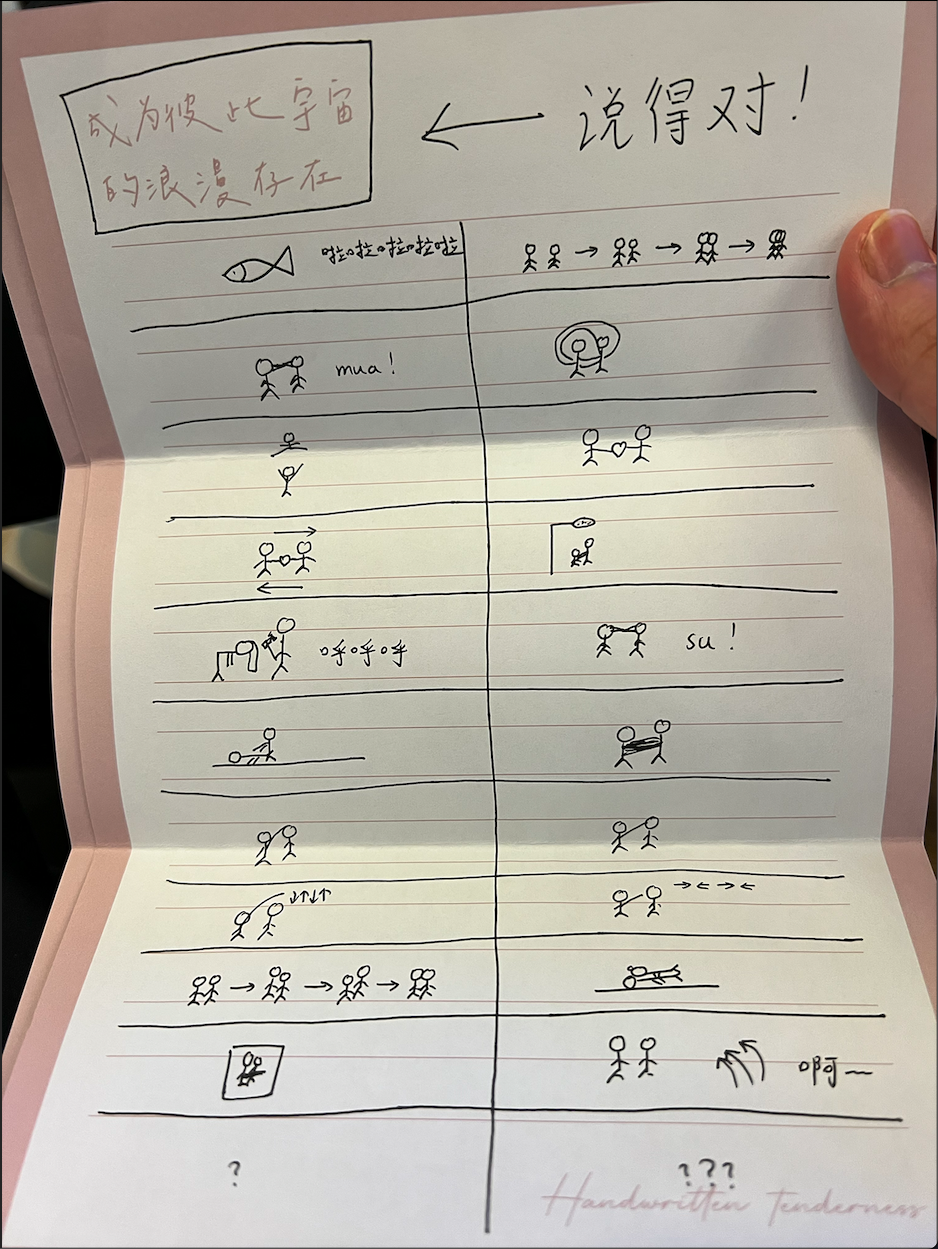 成为彼此宇宙
的浪漫存在
说得对！
啦啦啦啦啦
mua！
呼呼呼
su！
啊～
?
???
Handwritten Tenderness